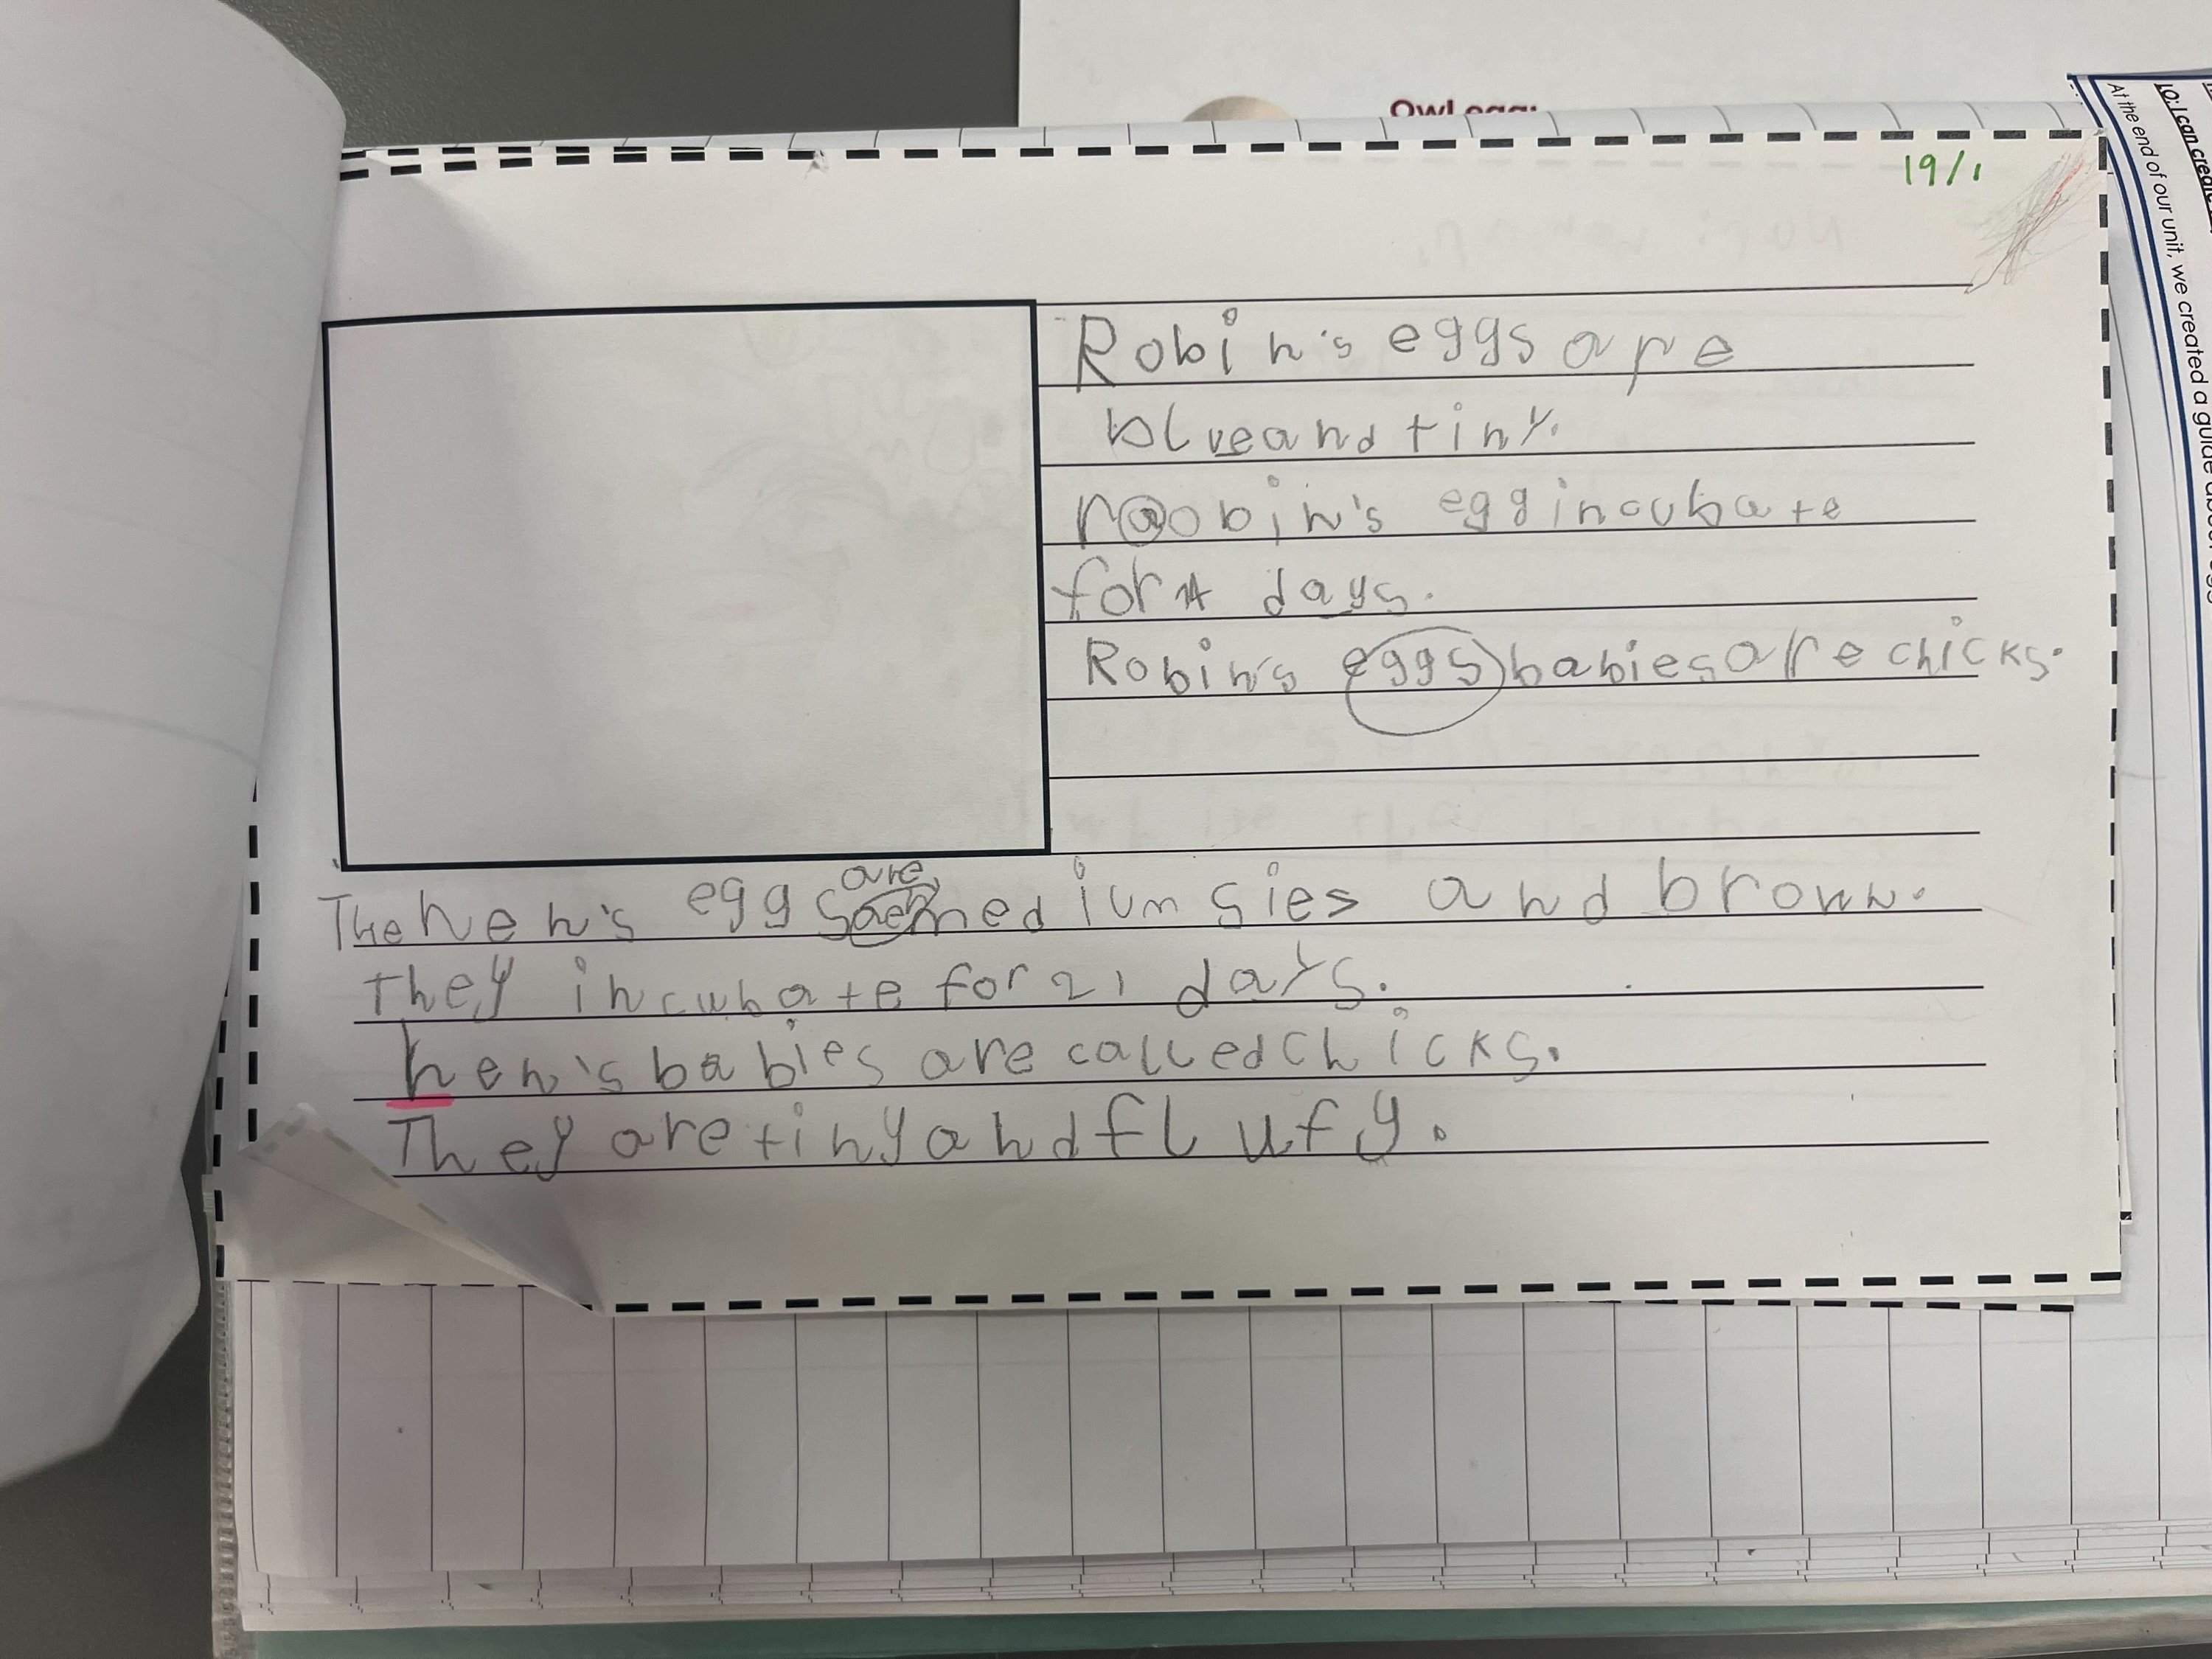 Owl eggs
19/1
Robin's eggs are
blueand tiny.
robin's egg incubate
for 14 days.
Robin's eggs babies are chicks.
The hen's eggs are medium sies and brown.
they incubate for 21 days.
hen's babies are called chicks.
They are tiny and flufy.
LO: I can create
At the end of our unit, we created a guide about eggs